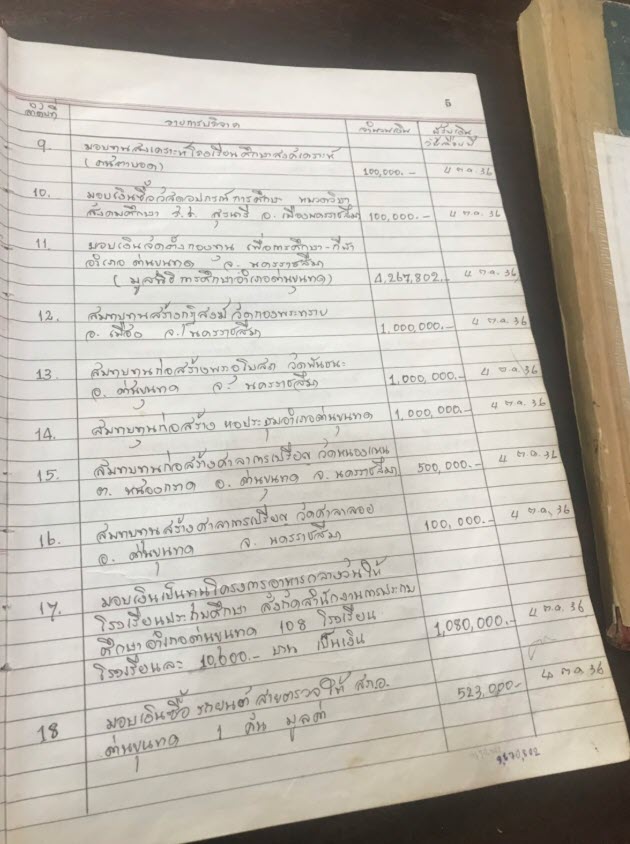 5
ลำดับที่ รายการบริจาค จำนวนเงิน รับเงิน วันเดือนปี
9. มอบทุนสงเคราะห์โรงเรียนศึกษาสงเคราะห์
(คนตาบอด) 100,000.- 4 ต.ค. 36
10. มอบเงินซื้อวัสดุอุปกรณ์การศึกษา หมวดวิชา
สังคมศึกษา ร.ร. สุรนารี อ. เมืองนครราชสีมา 100,000.- 4 ต.ค. 36
11. มอบเงินจัดตั้งกองทุน เพื่อการศึกษา-กีฬา
อำเภอด่านขุนทด จ. นครราชสีมา
(มูลนิธิการศึกษาอำเภอด่านขุนทด) 4,267,802.- 4 ต.ค. 36
12. สมทบทุนสร้างกุฏิสงฆ์ วัดกองพระทราย
อ. เมือง จ. นครราชสีมา 1,000,000.- 4 ต.ค. 36
13. สมทบทุนก่อสร้างพระอุโบสถ วัดพันชนะ
อ. ด่านขุนทด จ. นครราชสีมา 1,000,000.- 4 ต.ค. 36
14. สมทบทุนก่อสร้าง หอประชุมอำเภอด่านขุนทด 1,000,000.- 4 ต.ค. 36
15. สมทบทุนก่อสร้างศาลาการเปรียญ วัดหนองแหน
ต. หนองกราด อ. ด่านขุนทด จ. นครราชสีมา 500,000.- 4 ต.ค. 36
16. สมทบทุนสร้างศาลาการเปรียญ วัดศาลาลอย
อ. ด่านขุนทด จ. นครราชสีมา 100,000.- 4 ต.ค. 36
17. มอบเงินเป็นทุนโครงการอาหารกลางวันให้
โรงเรียนประถมศึกษา สังกัดสำนักงานการประถม
ศึกษา อำเภอด่านขุนทด 108 โรงเรียน
โรงเรียนละ 10,000.- บาท เป็นเงิน 1,080,000.- 4 ต.ค. 36
18 มอบเงินซื้อ รถยนต์ สายตรวจให้ สภ.อ.
ด่านขุนทด 1 คัน มูลค่า 523,000.- 4 ต.ค. 36
9,670,802